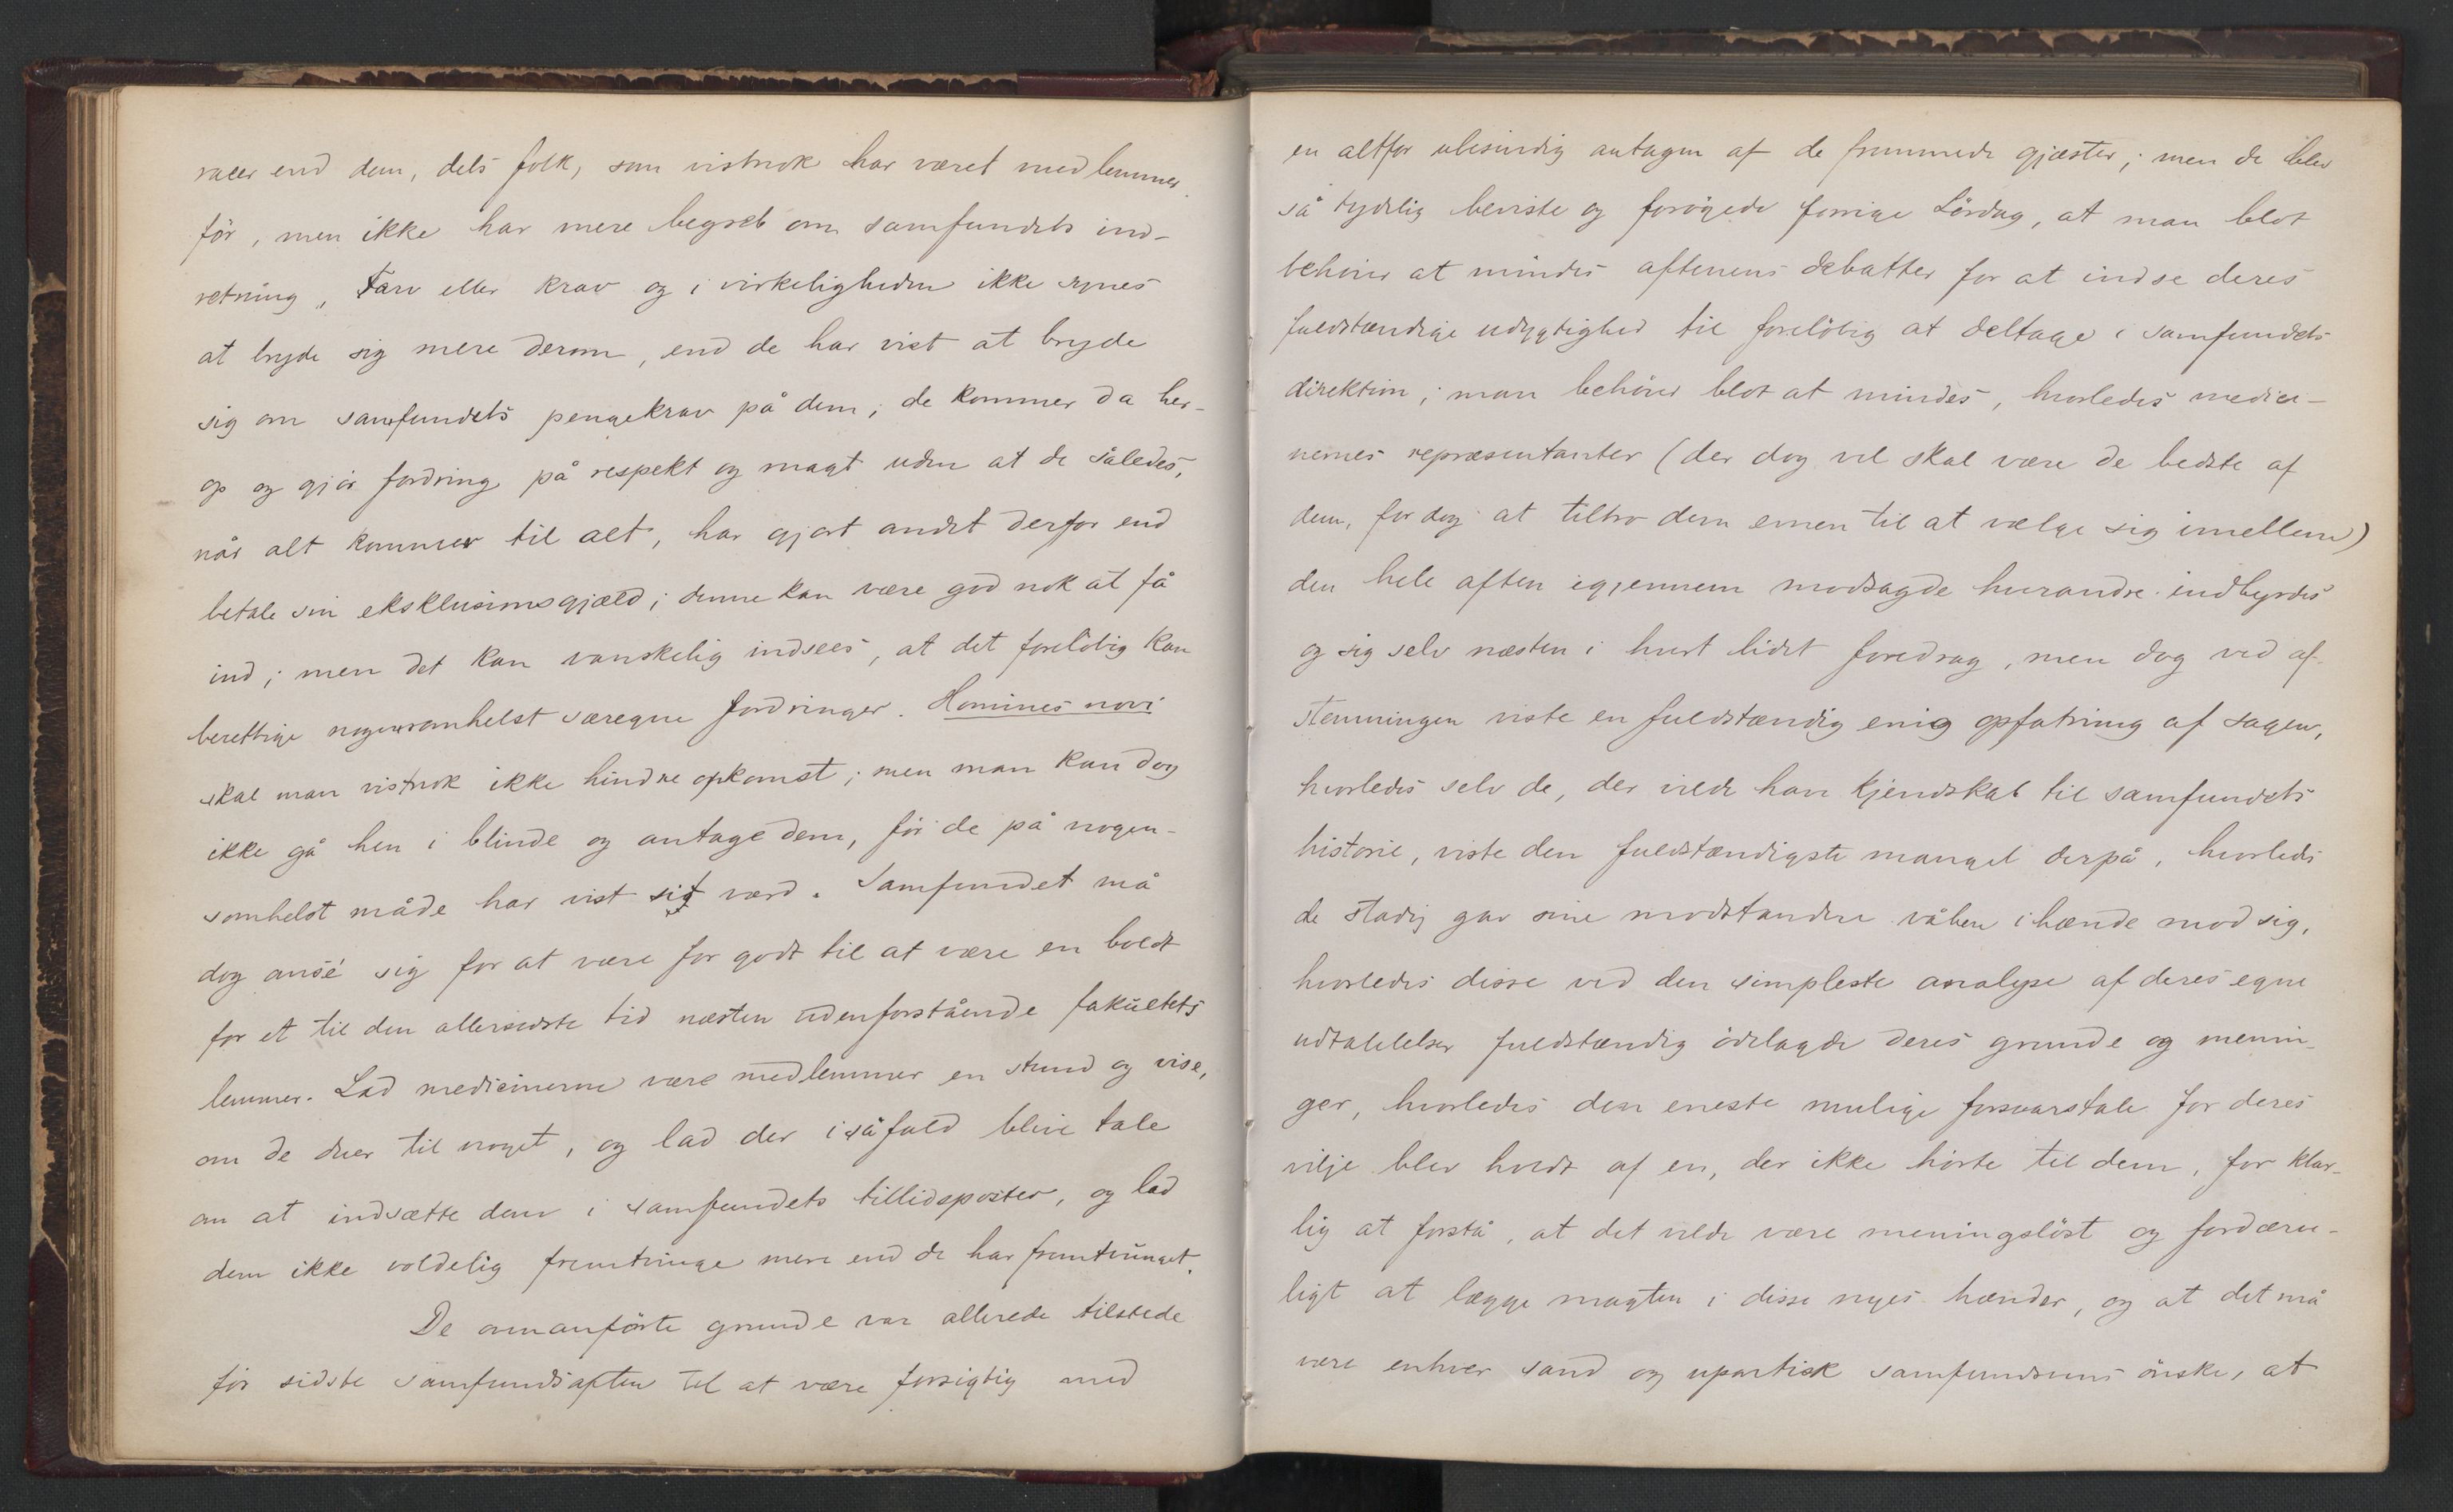 racer end dem, dels folk, som vistnok har været medlemmer
før, men ikke har mere begreb om samfundets ind-
retning, Tarv eller krav og i virkeligheden ikke synes
at bryde sig mere derom, end de har vist at bryde
sig om samfundets pengekrav på dem; de kommer da her-
op og gjør fordring på respekt og magt uden at de således,
når alt kommer til alt, har gjort andet derfor end
betale sin eksklusionsgjæld; denne kan være god nok at få
ind; men det kan vanskelig indsees, at det foreløbig kan
berettige nogensomhelst særegne fordringer. Homines novi
skal man vistnok ikke hindre opkomst; men man kan dog
ikke gå hen i blinde og antage dem, før de på nogen-
somhelst måde har vist sit værd. Samfundet må
dog ansé sig for at være for godt til at være en boldt
for et til den allersidste tid næsten udenforstående fakultets
lemmer. Lad medicinerne være medlemmer en stund og vise,
om de duer til noget, og lad der isåfald blive tale
om at indsætte dem i samfundets tillidsposter, og lad
dem ikke voldelig fremtvinge mere end de har fremtvunget.
De omanførte grunde var allerede tilstede
før sidste samfundsaften til at være forsigtig med
en altfor ubesindig antagen af de fremmede gjæster; men de blev
så tydelig beviste og forøgede forrige Lørdag, at man blot
behøver at mindes aftenens debatter for at indse deres
fuldstændige udygtighed til foreløbig at deltage i samfundets
direktion; man behøver blot at mindes, hvorledes medici-
nernes repræsentanter (der dog vel skal være de bedste af
dem, for dog at tiltro dem evnen til at vælge sig imellem)
den hele aften igjennem modsagde hverandre indbyrdes
og sig selv næsten i hvert lidet foredrag, men dog ved af-
stemningen viste en fuldstændig enig opfatning af sagen,
hvorledes selv de, der vilde have kjendskab til samfundets
historie, viste den fuldstændigste mangel derpå, hvorledes
de stadig gav sine modstandere våben ihænde mod sig,
hvorledes disse ved den simpleste analyse af deres egne
udtalelser fuldstændig ødelagde deres grunde og menin-
ger, hvorledes den eneste mulige forsvarstale for deres
vilje blev holdt af en, der ikke hørte til dem, for klar-
lig at forstå, at det vilde være meningsløst og fordærve-
ligt at lægge magten i disse nyes hænder, og at det må
være enhver sand og upartisk samfundsvens ønske, at